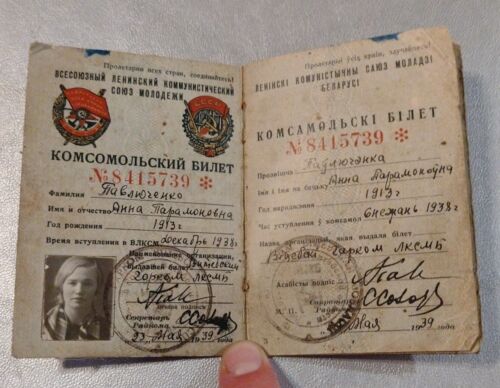 Пролетарии всех стран, соединяйтесь!
ВСЕСОЮЗНЫЙ ЛЕНИНСКИЙ КОММУНИСТИЧЕСКИЙ
СОЮЗ МОЛОДЕЖИ
СССР
КОМСОМОЛЬСКИЙ БИЛЕТ
№8415739
Фамилия Павлюченко
Имя и отчество Анна Парамоновна
Год рождения 1913 г
Время вступления в ВЛКСМ Декабрь 1938 г
Наименование организации,
выдавшей билет
Горком ЛКСМБ
Личная подпись
Секретарь
Райкома
23 Мая 1939 года
Пролетарыі ўсіх краін, злучайцесь!
ЛЕНІНСКІ КОМУНІСТЫЧНЫ САЮЗ МОЛАДЗІ
БЕЛАРУСІ
КОМСАМОЛЬСКІ БІЛЕТ
№8415739
Прозвішча Паўлючэнка
Імя і імя на бацьку Анна Парамоноўна
Год нараджэння 1913 г
Час уступлення ў комсамол Снежань 1938 г
Назва організацыі, якая выдала білет
Гарком ЛКСМБ
Асабісты подпіс
М. П.
Мая 1939 года